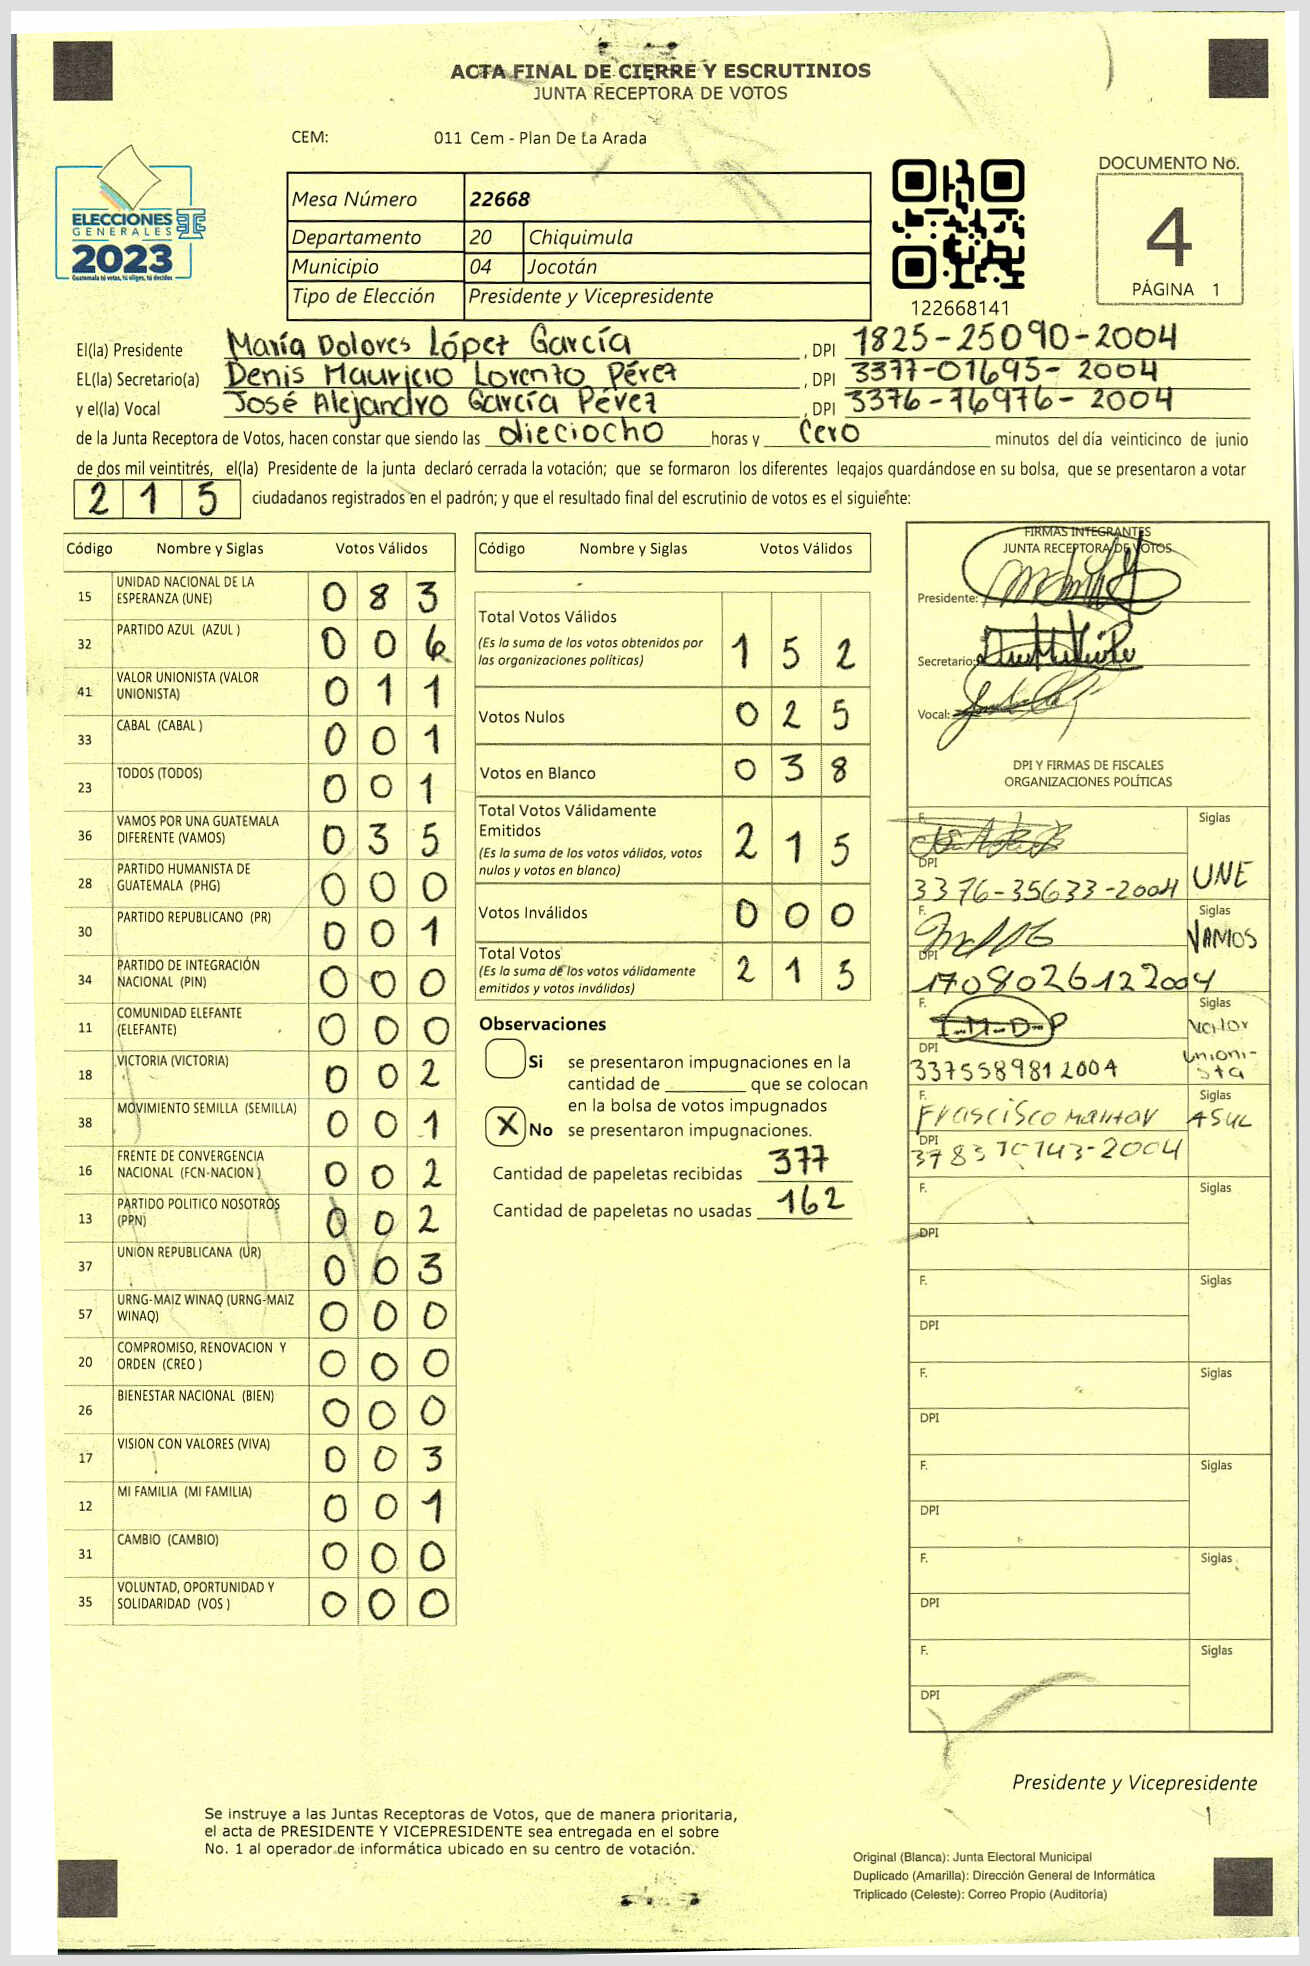 ACTA FINAL DE CIERRE Y ESCRUTINIOS
JUNTA RECEPTORA DE VOTOS
CEM: 011 Cem - Plan De La Arada
ELECCIONES
GENERALES
2023
Guatemala tú votas, tú eliges, tú decides
Mesa Número 22668
Departamento 20 Chiquimula
Municipio 04 Jocotán
Tipo de Elección Presidente y Vicepresidente
122668141
DOCUMENTO No.
4
PÁGINA 1
El(la) Presidente María Dolores López García , DPI 1825-25090-2004
EL(la) Secretario(a) Denis Mauricio Lorenzo Pérez , DPI 3377-01695-2004
y el(la) Vocal José Alejandro García Pérez , DPI 3376-76976-2004
de la Junta Receptora de Votos, hacen constar que siendo las dieciocho horas y cero minutos del día veinticinco de junio
de dos mil veintitrés, el(la) Presidente de la junta declaró cerrada la votación; que se formaron los diferentes legajos guardándose en su bolsa, que se presentaron a votar
215 ciudadanos registrados en el padrón; y que el resultado final del escrutinio de votos es el siguiente:
Código Nombre y Siglas Votos Válidos
15 UNIDAD NACIONAL DE LA ESPERANZA (UNE) 083
32 PARTIDO AZUL (AZUL ) 006
41 VALOR UNIONISTA (VALOR UNIONISTA) 011
33 CABAL (CABAL ) 001
23 TODOS (TODOS) 001
36 VAMOS POR UNA GUATEMALA DIFERENTE (VAMOS) 035
28 PARTIDO HUMANISTA DE GUATEMALA (PHG) 000
30 PARTIDO REPUBLICANO (PR) 001
34 PARTIDO DE INTEGRACIÓN NACIONAL (PIN) 000
11 COMUNIDAD ELEFANTE (ELEFANTE) 000
18 VICTORIA (VICTORIA) 002
38 MOVIMIENTO SEMILLA (SEMILLA) 001
16 FRENTE DE CONVERGENCIA NACIONAL (FCN-NACION ) 002
13 PARTIDO POLITICO NOSOTROS (PPN) 002
37 UNION REPUBLICANA (UR) 003
57 URNG-MAIZ WINAQ (URNG-MAIZ WINAQ) 000
20 COMPROMISO, RENOVACION Y ORDEN (CREO ) 000
26 BIENESTAR NACIONAL (BIEN) 000
17 VISION CON VALORES (VIVA) 003
12 MI FAMILIA (MI FAMILIA) 001
31 CAMBIO (CAMBIO) 000
35 VOLUNTAD, OPORTUNIDAD Y SOLIDARIDAD (VOS ) 000
Código Nombre y Siglas Votos Válidos
Total Votos Válidos
(Es la suma de los votos obtenidos por las organizaciones políticas) 152
Votos Nulos 025
Votos en Blanco 038
Total Votos Válidamente Emitidos
(Es la suma de los votos válidos, votos nulos y votos en blanco) 215
Votos Inválidos 000
Total Votos
(Es la suma de los votos válidamente emitidos y votos inválidos) 215
Observaciones
Si se presentaron impugnaciones en la
cantidad de ________ que se colocan
en la bolsa de votos impugnados
X No se presentaron impugnaciones.
Cantidad de papeletas recibidas 377
Cantidad de papeletas no usadas 162
FIRMAS INTEGRANTES
JUNTA RECEPTORA DE VOTOS
Presidente:
Secretario:
Vocal:
DPI Y FIRMAS DE FISCALES
ORGANIZACIONES POLÍTICAS
F. Siglas
DPI 3376-35633-2004 UNE
F. Siglas
DPI 1708026122004 VAMOS
F. I-M-D-P Siglas
DPI 3375589812004 Valor Unionista
F. Francisco Siglas
DPI ASUL
F. Siglas
DPI
F. Siglas
DPI
F. Siglas
DPI
F. Siglas
DPI
F. Siglas
DPI
F. Siglas
DPI
Presidente y Vicepresidente
Se instruye a las Juntas Receptoras de Votos, que de manera prioritaria,
el acta de PRESIDENTE Y VICEPRESIDENTE sea entregada en el sobre
No. 1 al operador de informática ubicado en su centro de votación.
Original (Blanca): Junta Electoral Municipal
Duplicado (Amarilla): Dirección General de Informática
Triplicado (Celeste): Correo Propio (Auditoria)